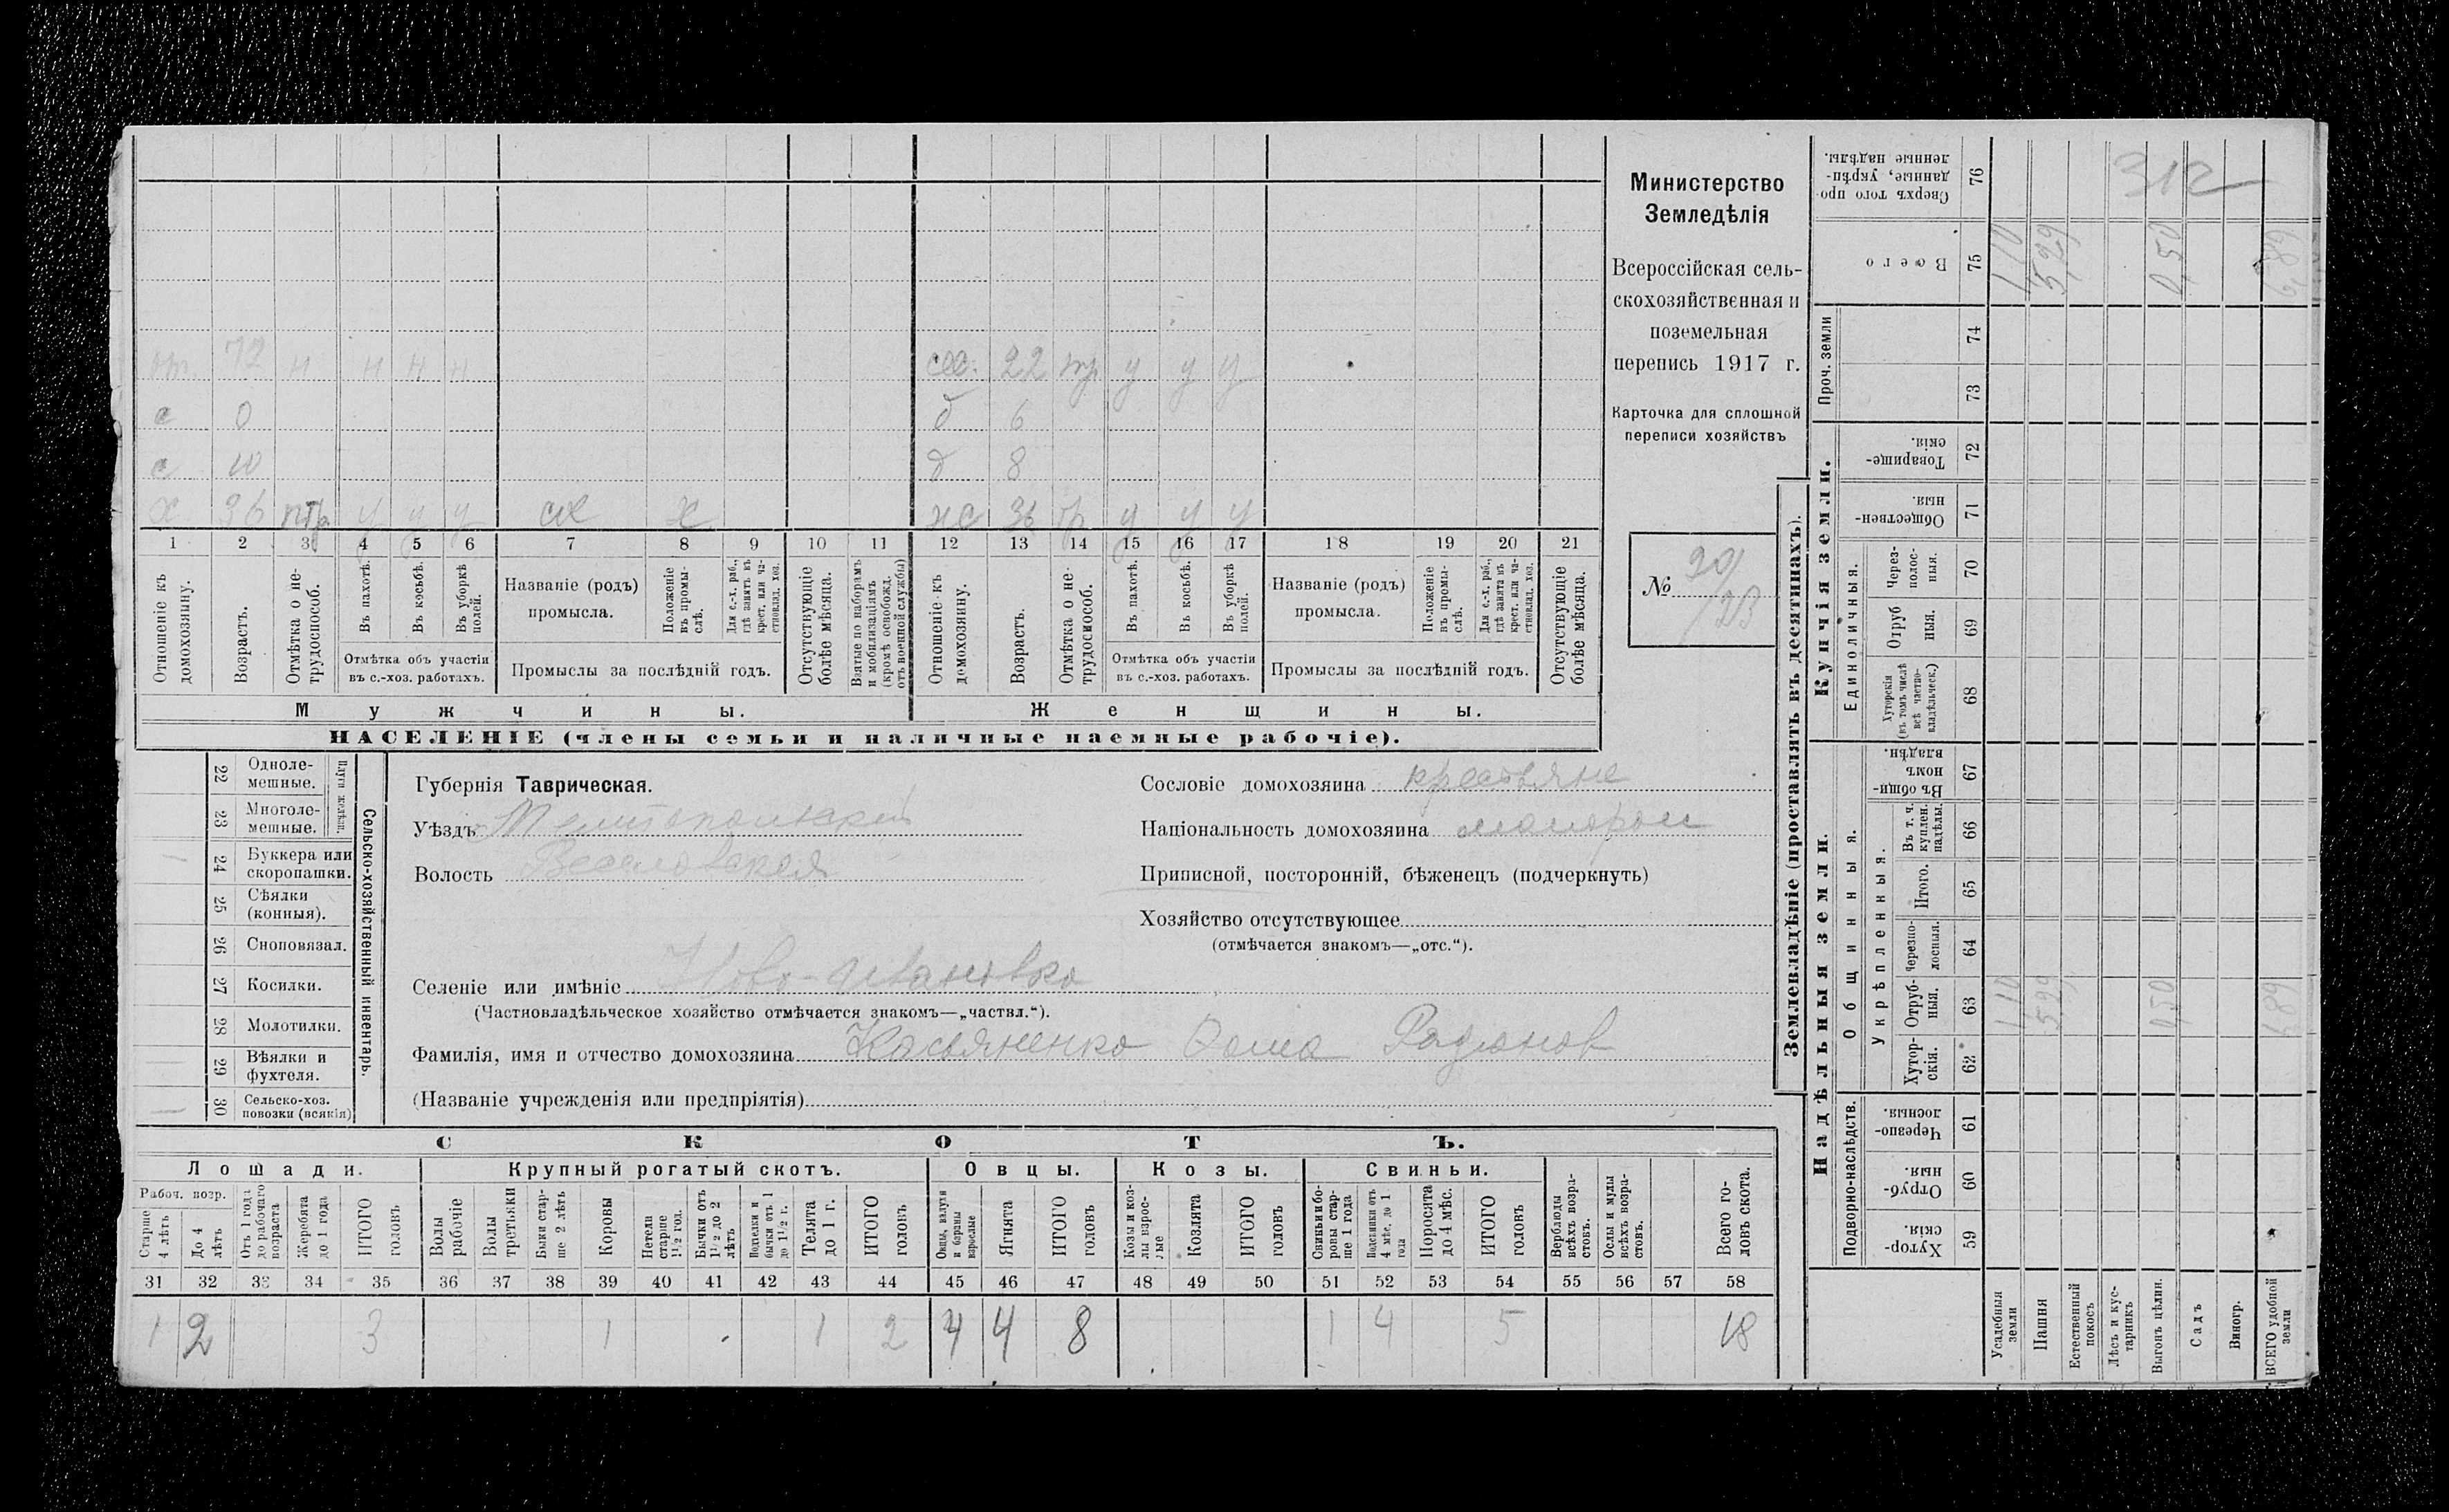 Министерство
Земледѣлія
Всероссійская сель-
скохозяйственная и
поземельная
перепись 1917 г.
Карточка для сплошной
переписи хозяйствъ
№ 90/23
от. 72 н н н н
сес. 22 тр у у у
с 0
д 6
с 10
д 8
х 36 птр у у у сх х
жс 36 тр у у у
1 2 3 4 5 6 7 8 9 10 11 12 13 14 15 16 17 18 19 20 21
Отношеніе къ домохозяину.
Возрастъ.
Отмѣтка о не-трудоспособ.
Въ пахотѣ.
Въ косьбѣ.
Въ уборкѣ полей.
Отмѣтка объ участіи въ с.-хоз. работахъ.
Названіе (родъ) промысла.
Положеніе въ промы-слѣ.
Для с.-х. раб., гдѣ занятъ въ крест. или ча-стновлад. хоз.
Промыслы за послѣдній годъ.
Отсутствующіе болѣе мѣсяца.
Взятые по наборамъ и мобилизаціямъ (кромѣ освобожд. отъ военной службы)
Отношеніе къ домохозяину.
Возрастъ.
Отмѣтка о не-трудоспособ.
Въ пахотѣ.
Въ косьбѣ.
Въ уборкѣ полей.
Отмѣтка объ участіи въ с.-хоз. работахъ.
Названіе (родъ) промысла.
Положеніе въ промы-слѣ.
Для с.-х. раб., гдѣ занята въ крест. или ча-стновлад. хоз.
Промыслы за послѣдній годъ.
Отсутствующіе болѣе мѣсяца.
Мужчины.
Женщины.
НАСЕЛЕНІЕ (члены семьи и наличные наемные рабочіе).
Сельско-хозяйственный инвентарь.
Плуги желѣзн.
22 Одноле-мешные.
23 Многоле-мешные.
— 24 Буккера или скоропашки.
25 Сѣялки (конныя).
26 Сноповязал.
27 Косилки.
28 Молотилки.
29 Вѣялки и фухтеля.
— 30 Сельско-хоз. повозки (всякія)
Губернія Таврическая.
Уѣздъ Мелитопольский
Волость Веселовская
Сословіе домохозяина крестьяне
Національность домохозяина малорос
Приписной, посторонній, бѣженецъ (подчеркнуть)
Хозяйство отсутствующее
(отмѣчается знакомъ—„отс.“).
Селеніе или имѣніе Ново-Ивановка
(Частновладѣльческое хозяйство отмѣчается знакомъ—„частвл.“).
Фамилія, имя и отчество домохозяина Касьяненко Фома Радионов
(Названіе учрежденія или предпріятія)
СКОТЪ.
Лошади. Крупный рогатый скотъ. Овцы. Козы. Свиньи.
Рабоч. возр.
Старше 4 лѣтъ
До 4 лѣтъ
Отъ 1 года до рабочаго возраста
Жеребята до 1 года
ИТОГО головъ
Волы рабочіе
Волы третьяки
Быки стар-ше 2 лѣтъ
Коровы
Нетели старше 1½ год.
Бычки отъ 1½ до 2 лѣтъ
Подтелки и бычки отъ 1 до 1½ г.
Телята до 1 г.
ИТОГО головъ
Овцы, валухи и бараны взрослые
Ягнята
ИТОГО головъ
Козы и коз-лы взрос-лые
Козлята
ИТОГО головъ
Свиньи и бо-ровы стар-ше 1 года
Подсвинки отъ 4 мѣс. до 1 года
Поросята до 4 мѣс.
ИТОГО головъ
Верблюды всѣхъ возра-стовъ.
Ослы и мулы всѣхъ возра-стовъ.
Всего го-ловъ скота.
31 32 33 34 35 36 37 38 39 40 41 42 43 44 45 46 47 48 49 50 51 52 53 54 55 56 57 58
1 2 3 1 1 2 4 4 8 1 4 5 18
Землевладѣніе (проставлять въ десятинахъ).
Надѣльныя земли.
Купчія земли.
Проч. земли
Подворно-наслѣдств.
Общинныя.
Укрѣпленныя.
Единоличныя.
Хутор-скія. 59
Отруб-ныя. 60
Черезпо-лосныя. 61
Хутор-скія. 62
Отруб-ныя. 63
Черезпо-лосныя. 64
Итого. 65
Въ т. ч. куплен. надѣлы. 66
Въ общи-номъ владѣн. 67
Хуторскія (въ томъ числѣ всѣ частно-владѣльческ.) 68
Отруб ныя. 69
Через-полос-ныя. 70
Обществен-ныя. 71
Товарище-скія. 72
73
74
Всего 75
Сверхъ того про-данные, укрѣп-ленные надѣлы. 76
Усадебныя земли 1,10 1,10
Пашня 5,29 5,29
Естественный покосъ
Лѣсъ и кус-тарникъ
Выгонъ цѣлин. 0,50 0,50
Садъ
Виногр.
ВСЕГО удобной земли 6,89 6,89
312